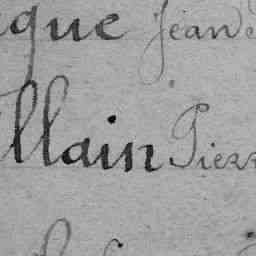 que Jean
llain Pierr